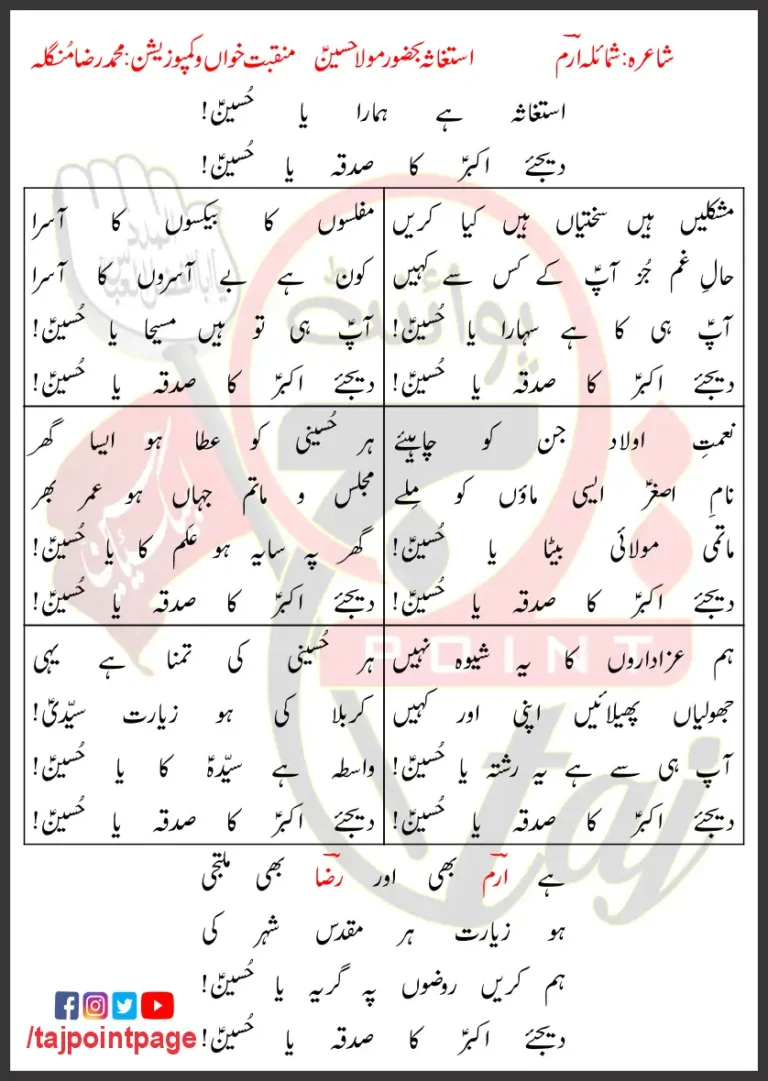 شاعرہ: شمائلہ ارمؔ استغاثہ بحضور مولا حسینؑ منقبت خواں و کمپوزیشن: محمد رضا مُنگلہ
استغاثہ ہے ہمارا یا حُسینؑ!
دیجئے اکبرؑ کا صدقہ یا حُسینؑ!
مشکلیں ہیں سختیاں ہیں کیا کریں
حالِ غم جُز آپؑ کے کس سے کہیں
آپؑ ہی کا ہے سہارا یا حُسینؑ!
دیجئے اکبرؑ کا صدقہ یا حُسینؑ!
مفلسوں کا بیکسوں کا آسرا
کون ہے بے آسروں کا آسرا
آپؑ ہی تو ہیں مسیحا یا حُسینؑ!
دیجئے اکبرؑ کا صدقہ یا حُسینؑ!
نعمتِ اولاد جن کو چاہیئے
نامِ اصغرؑ ایسی ماؤں کو مِلے
ماتمی مولائی بیٹا یا حُسینؑ!
دیجئے اکبرؑ کا صدقہ یا حُسینؑ!
ہر حُسینی کو عطا ہو ایسا گھر
مجلس و ماتم جہاں ہو عمر بھر
گھر پہ سایہ ہو عَلم کا یا حُسینؑ!
دیجئے اکبرؑ کا صدقہ یا حُسینؑ!
ہم عزاداروں کا یہ شیوہ نہیں
جھولیاں پھیلائیں اپنی اور کہیں
آپؑ ہی سے ہے یہ رشتہ یا حُسینؑ!
دیجئے اکبرؑ کا صدقہ یا حُسینؑ!
ہر حُسینی کی تمنا ہے یہی
کربلا کی ہو زیارت سیّدیؑ!
واسطہ ہے سیّدہؑ کا یا حُسینؑ!
دیجئے اکبرؑ کا صدقہ یا حُسینؑ!
ہے ارمؔ بھی اور رضاؔ بھی ملتجی
ہو زیارت ہر مقدس شہر کی
ہم کریں روضوں پہ گریہ یا حُسینؑ!
دیجئے اکبرؑ کا صدقہ یا حُسینؑ!
/tajpointpage
پوائنٹ
POINT
taj
لبیک یا حسین